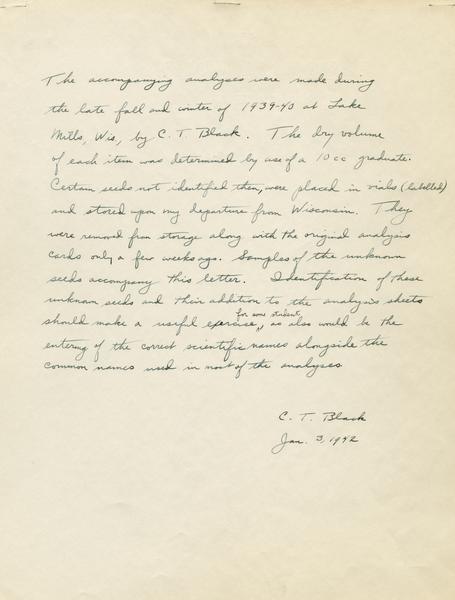 The accompanying analyses were made during
the late fall and winter of 1939-40 at Lake
Mills, Wis., by C. T. Black. The dry volume
of each item was determined by use of a 10 cc graduate.
Certain seeds not identified then, were placed in vials (labelled)
and stored upon my departure from Wisconsin. They
were removed from storage along with the original analysis
cards only a few weeks ago. Samples of the unknown
seeds accompany this letter. Identification of these
unknown seeds and their addition to the analysis sheets
should make a useful exercise for some student, as also would be the
entering of the correct scientific names alongside the
common names used in most of the analyses
C. T. Black
Jan. 3, 1942